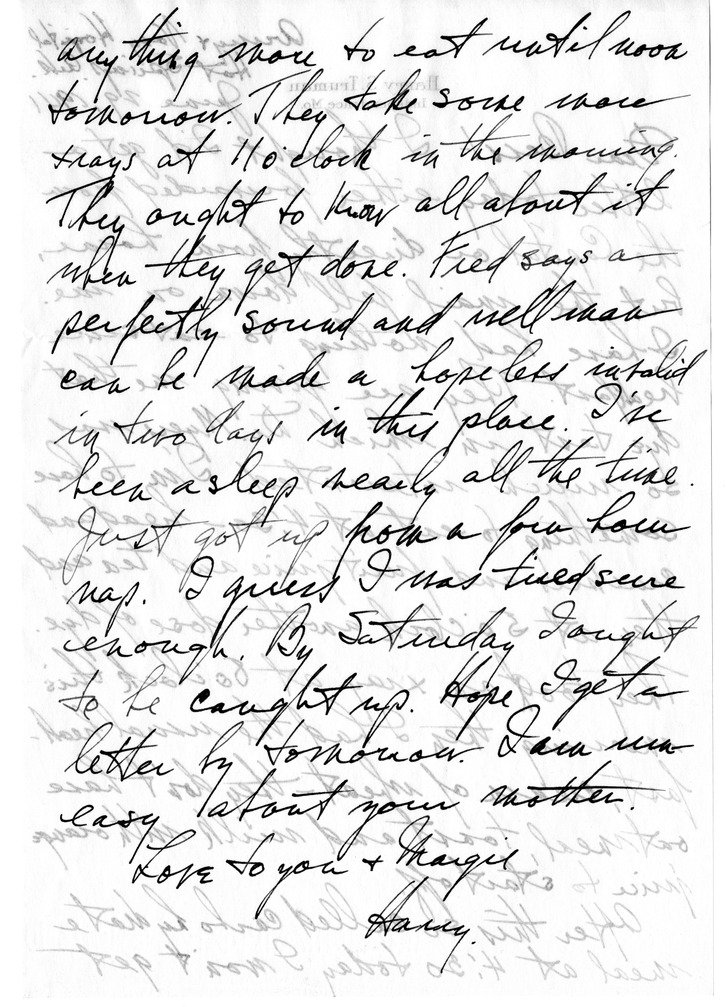 anything more to eat until noon
tomorrow. They take some more
xrays at 11 o'clock in the morning.
They ought to know all about it
when they get done. Fred says a
perfectly sound and well man
can be made a hopeless invalid
in two days in this place. I've
been asleep nearly all the time.
Just got up from a four hour
nap. I guess I was tired sure
enough. By Saturday I ought
to be caught up. Hope I get a
letter by tomorrow. I am un-
easy about your mother.
Love to you + Margie
Harry.